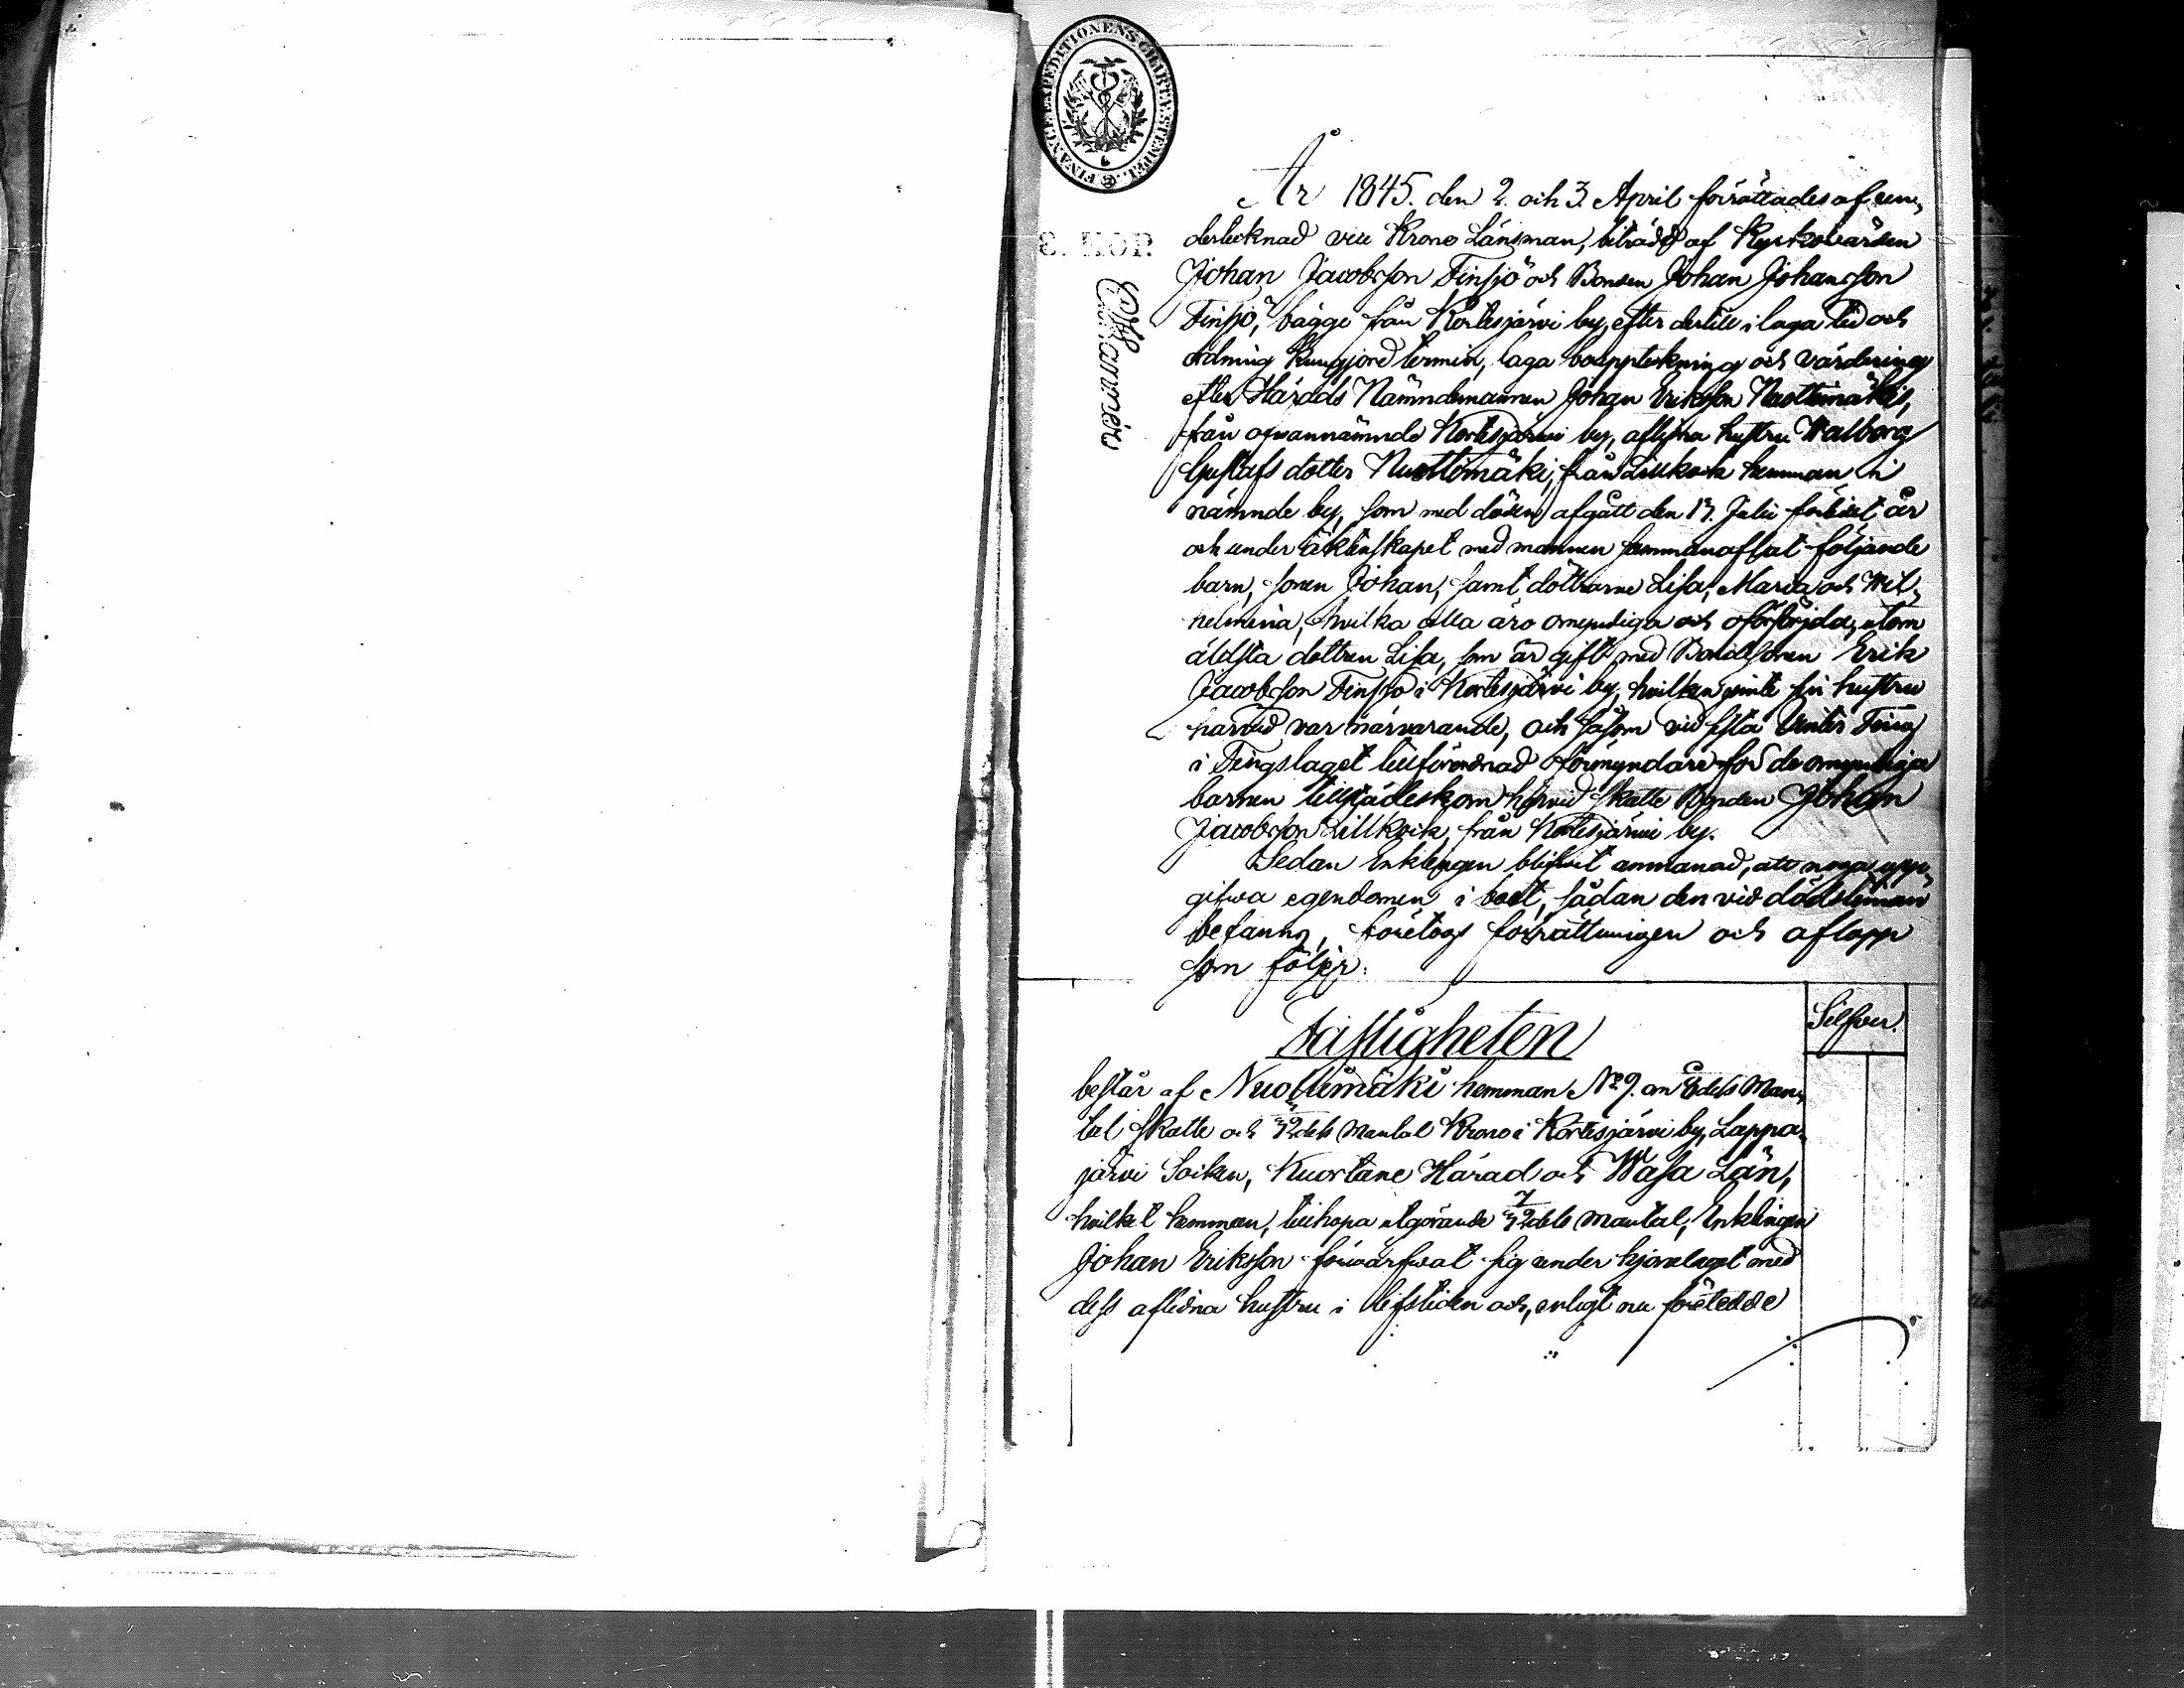 FINANCE EXPEDITIONENS CHARTÆ STEMPEL
6. KOP.
År 1845. den 2. och 3. April förrättades af un„
dertecknad vice Krono Länsman, biträdd af Kyrkovärden
Johan Jacobsson Finsjö och Bonden Johan Johansson
Finsjö, bägge från Kortesjärvi by, efter dertill i laga tid och
ordning kungjord termin, laga bouppteckning och värdering
efter Härads Nämndemannen Johan Eriksson Nuottimäkis,
från ofvannämnde Kortesjärvi by, aflidna hustru Walborg
Gustafs dotter Nuottimäki, från Lillkvik hemman i
nämnde by, som med döden afgått den 17. Julii förledet år
och under äktenskapet med mannen sammanaflat följande
barn, sonen Johan, samt döttrarne Lisa, Maria och Wil„
helmina, hvilka alla äro omyndiga och oförsörjda, utom
äldsta dottren Lisa, som är gift med Bondesonen Erik
Jacobsson Finsjö i Kortesjärvi by, hvilken jemte sin hustru
härvid var närvarande, och såsom vid sista Vinter Ting
i Tingslaget tillförordnad förmyndare för de omyndiga
barnen tillstädeskom härvid Skatte Bonden Johan
Jacobsson Lillkvik, från Kortesjärvi by.
Sedan Enklingen blifvit anmanad, att noga upp„
gifva egendomen i boet, sådan den vid dödstiman
befanns, företogs förrättningen och aflopp
som följer:
Silfver.
Fastigheten
består af Nuottimäki hemman No 9. om dels Man„
tal Skatte och dels mantal Krono i Kortesjärvi by, Lappa„
järvi Socken, Kuortane Härad och Wasa Län,
hvilket hemman, tillhopa utgörande 7/72 dels mantal, Enklingen
Johan Eriksson förvärfvat sig under hjonelaget med
dess aflidna hustru i lifstiden och, enligt nu företedde